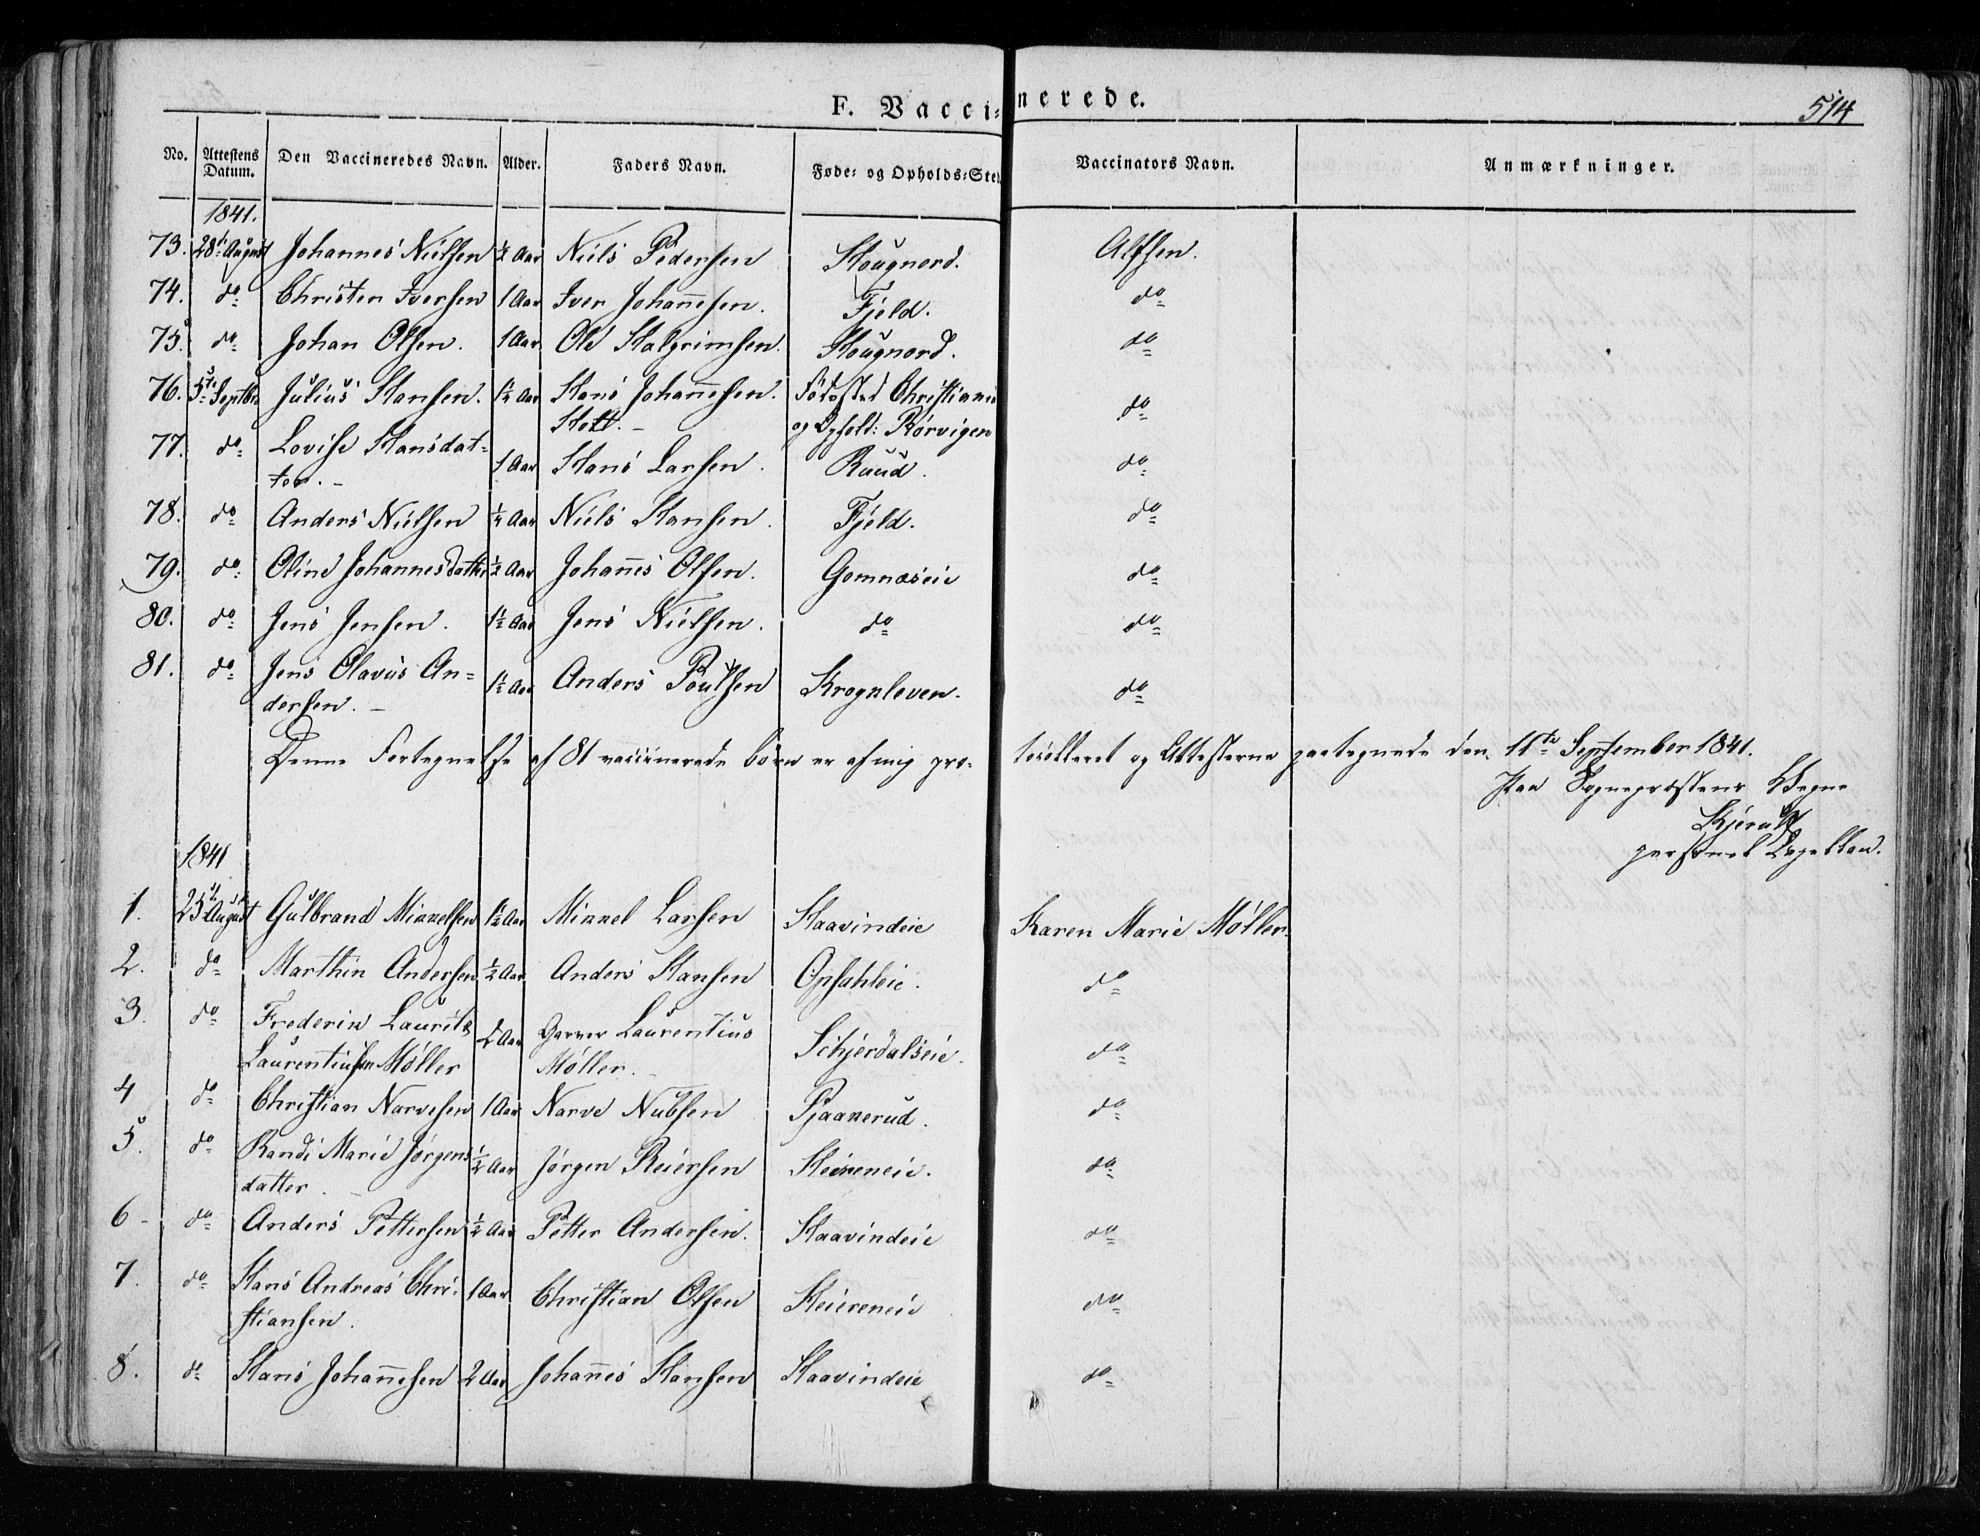 F. Vaccinerede.
514
No. Attestens Datum. Den Vaccineredes Navn. Alder. Faders Navn. Føde- og Opholds-Sted Vaccinators Navn. Anmærkninger.
1841.
73. 28de August Johannes Nielsen ½ Aar Niels Pedersen Hougnord. Alfsen.
74. do Christen Iversen 1 Aar Iver Johannesen. Fjeld. do
75. do Johan Olsen. 1 Aar Ole Halgrimsen. Hougnord. do
76. 5te Septbr Julius Hansen. 1½ Aar Hans Johannesen Fødested Christiania do
og Ophold: Rørvigen
77. do Lovise Hansdat-
ter. 1 Aar Hans Larsen. Ruud. do
78. do Anders Nielsen ¼ Aar Niels Hansen. Fjeld. do
79. do Oline Johannesdatter ½ Aar Johannes Olsen. Gomnæseie do
80. do Jens Jensen. 1½ Aar Jens Nielsen. do do
81. do Jens Olavus An-
dersen. 1½ Aar Anders Poulsen Krognleven. do
Denne Fortegnelse af 81 vaccinerede Børn er af mig pro-
tocolleret og Attesterne paategnede den 11te September 1841.
Paa Sognepræstens Vegne
personel Capellan.
1841
1. 25de August Gulbrand Mikkelsen 1½ Aar Mikkel Larsen Haavindeie Karen Marie Møller.
2. do Marthin Andersen ½ Aar Anders Hansen Opsahleie. do
3. do Frederik Laurits
Laurentiussen Møller 2 Aar Garver Laurentius
Møller. Schjerdalseie. do
4 do Christian Narvesen 1 Aar Narve Nubsen Pjaakerud. do
5. do Randi Marie Jørgens
datter. ½ Aar Jørgen Reiersen Heiereneie. do
6 do Anders Pettersen ½ Aar Petter Andersen. Haavindeie do
7. do Hans Andreas Chri-
stiansen. 1 Aar Christian Olsen Heiereneie do
8. do Hans Johannesen 2 Aar Johannes Hansen Haavindeie do